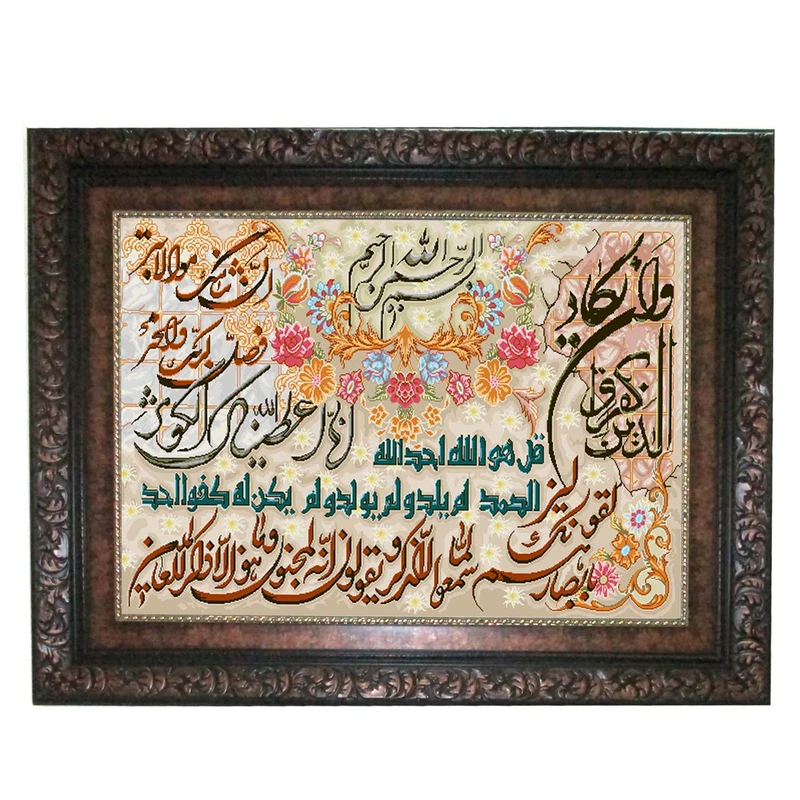 بسم الله الرحمن الرحیم
وان یکاد
الذین کفروا
لیزلقونک
بابصارهم لما سمعوا الذکر و یقولون انه لمجنون وما هو الا ذکر للعالمین
انا اعطیناک الکوثر
فصل لربک وانحر
ان شانئک هو الابتر
قل هو الله احد الله
الصمد لم یلد و لم یولد و لم یکن له کفوا احد